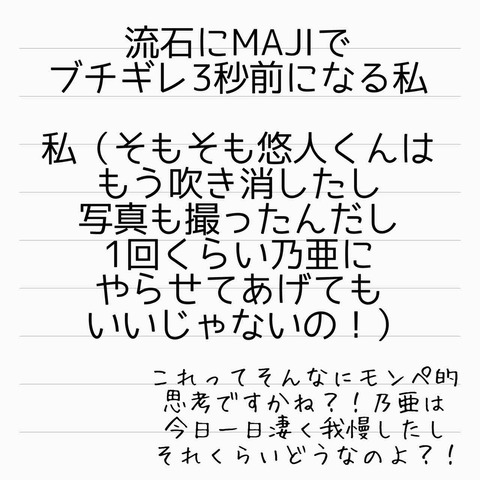 流石にMAJIで
ブチギレ3秒前になる私
私（そもそも悠人くんは
もう吹き消したし
写真も撮ったんだし
1回くらい乃亜に
やらせてあげても
いいじゃないの！）
これってそんなにモンペ的
思考ですかね？！乃亜は
今日一日凄く我慢したし
それくらいどうなのよ？！